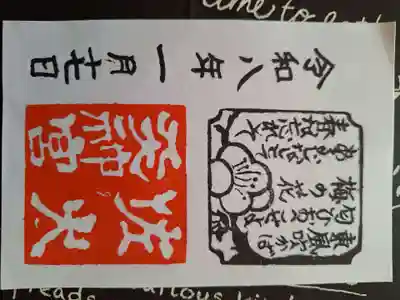 東風吹かば
匂ひおこせよ
梅の花
あるじなしとて
春なわすれそ
佐太
天神宮
令和八年一月十七日
time to